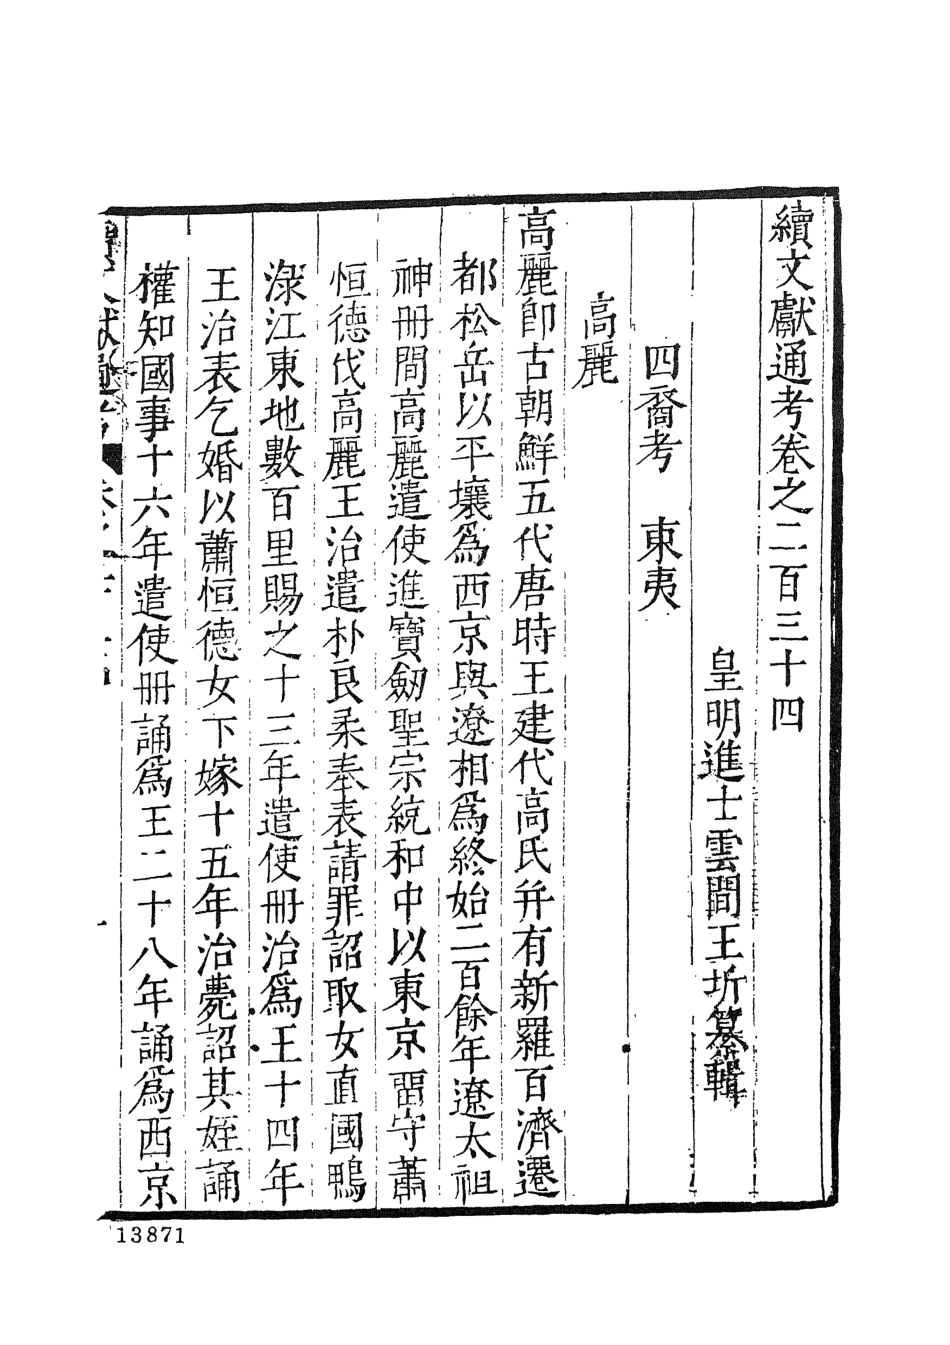 續文獻通考卷之二百三十四
皇明進士雲間王圻纂輯
四裔考　東夷
高麗
高麗卽古朝鮮五代唐時王建代高氏幷有新羅百濟遷
都松岳以平壤爲西京與遼相爲終始二百餘年遼太祖
神冊間高麗遣使進寶劒聖宗統和中以東京留守蕭
恒德伐高麗王治遣朴良柔奉表請罪詔取女直國鴨
淥江東地數百里賜之十三年遣使冊治爲王十四年
王治表乞婚以蕭恒德女下嫁十五年治薨詔其姪誦
權知國事十六年遣使冊誦爲王二十八年誦爲西京
一
13871